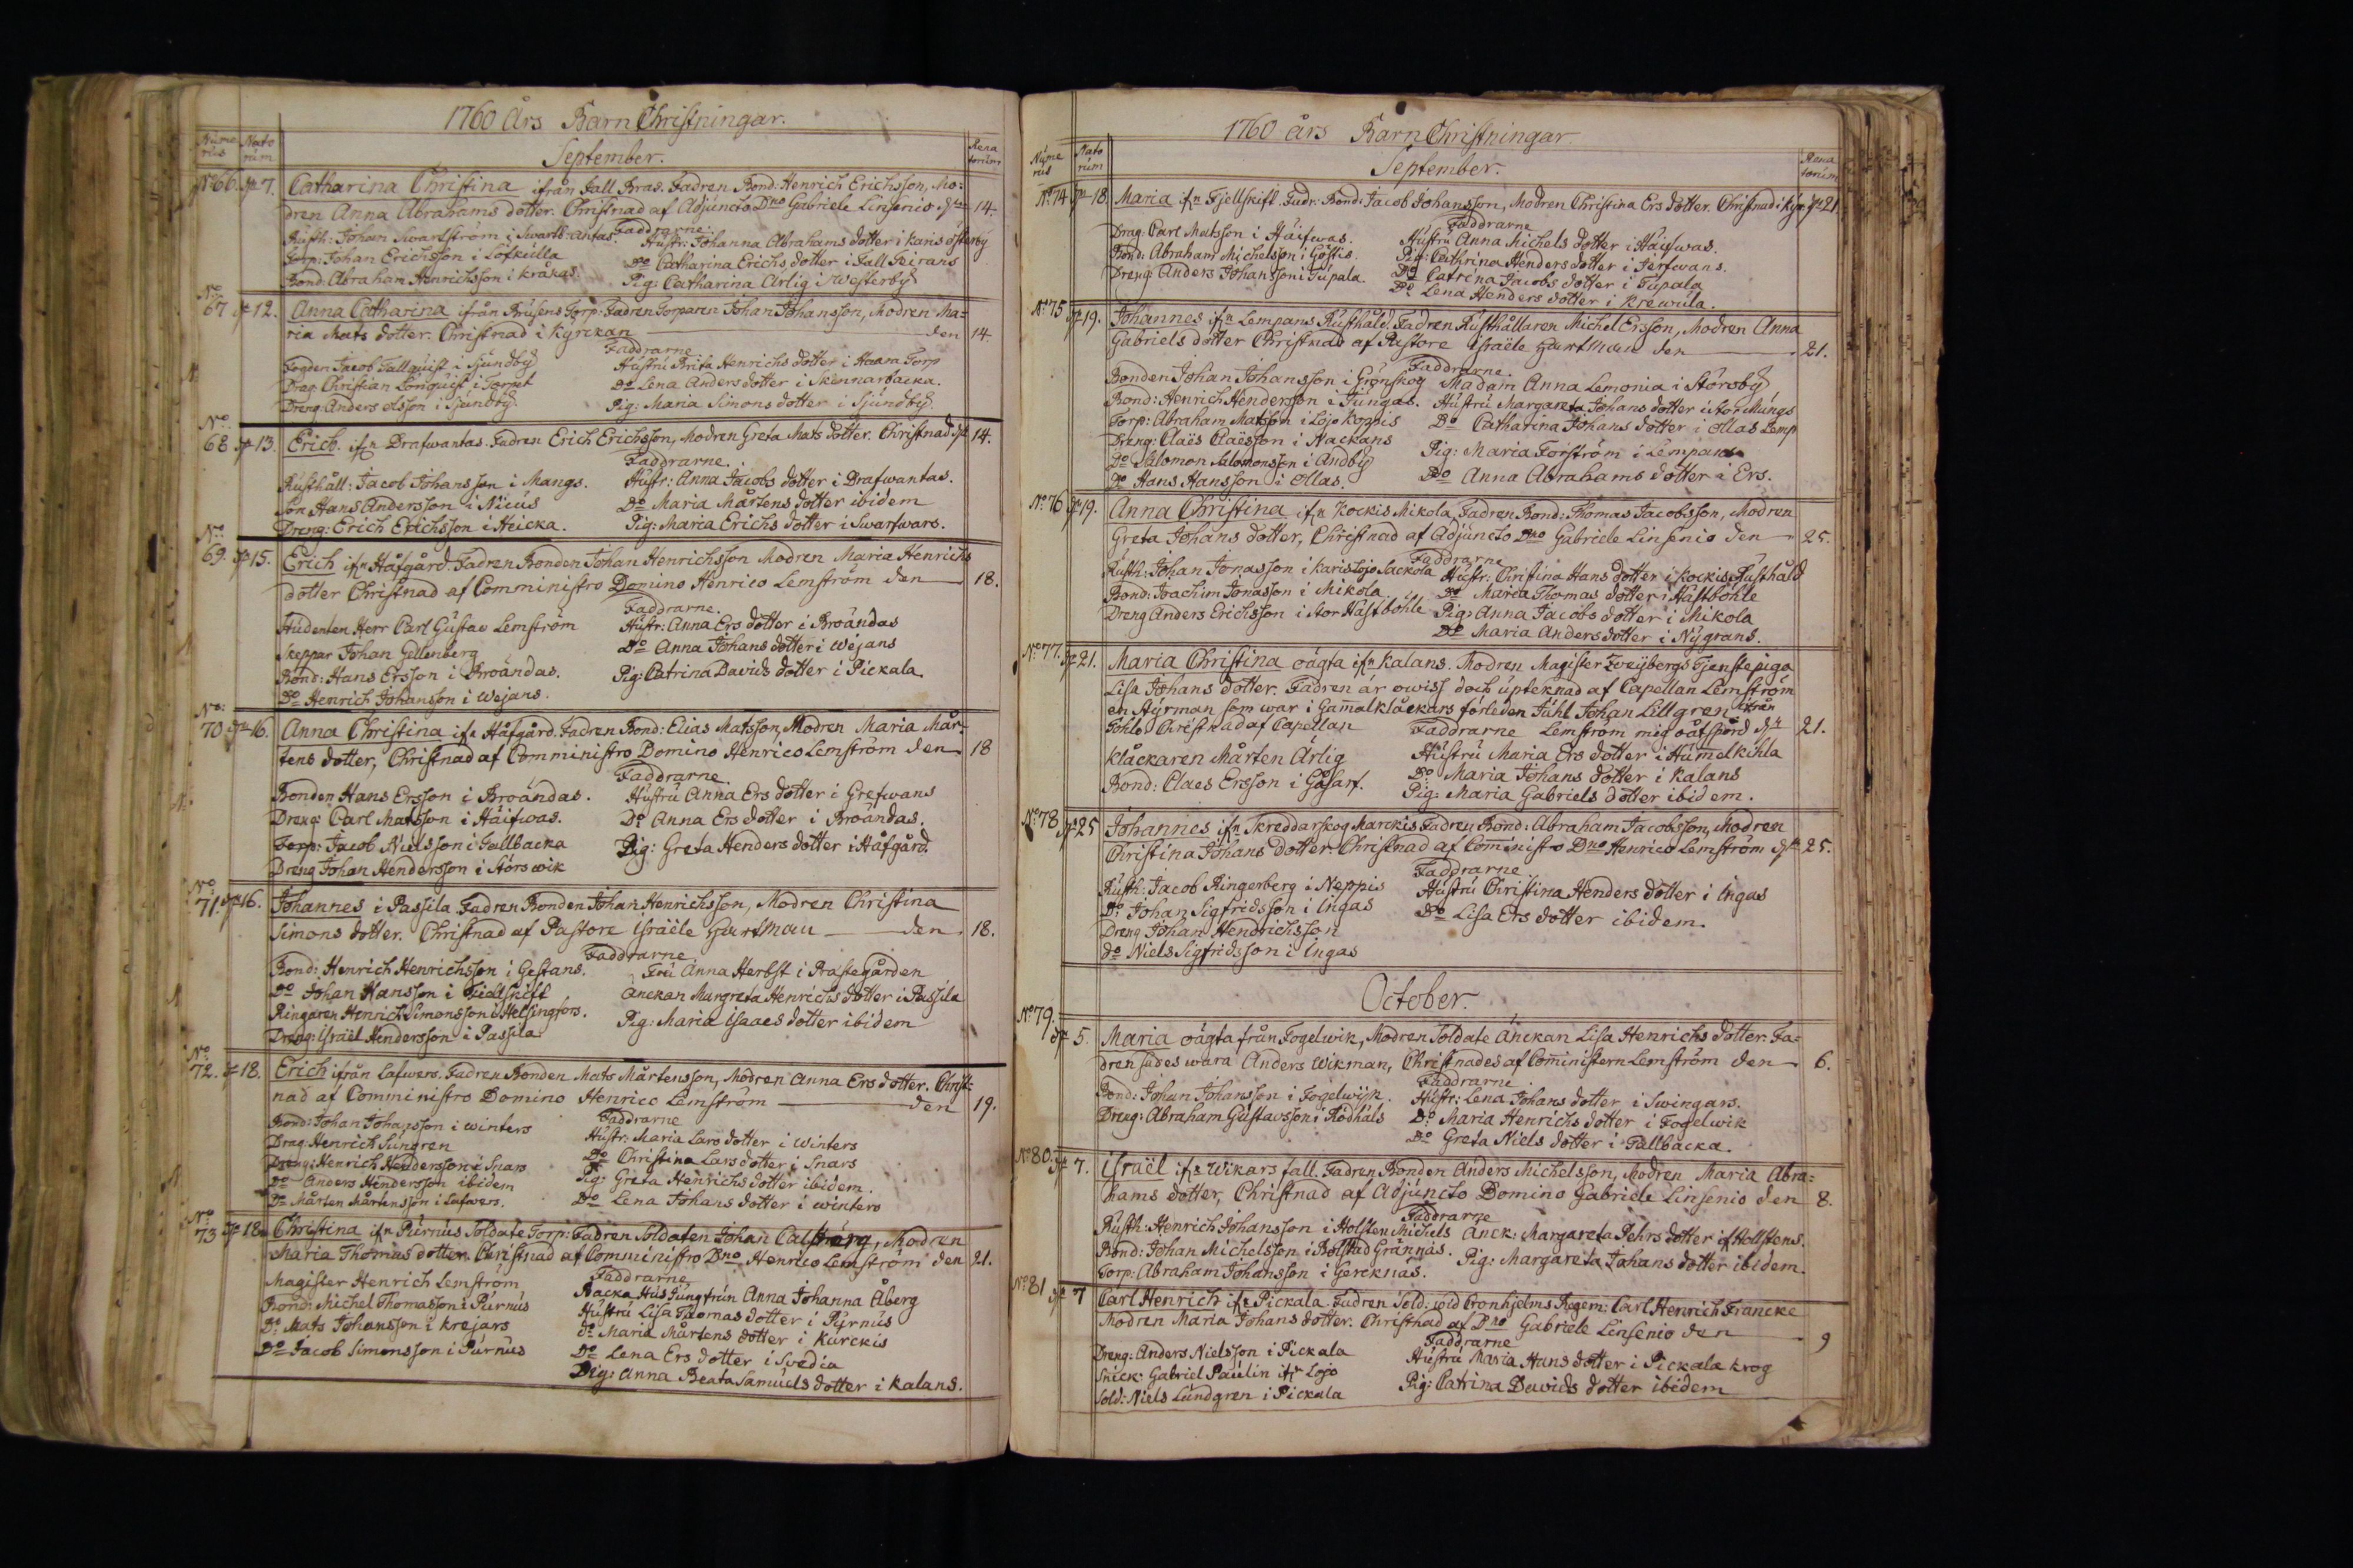 1760 Års Barn Christningar.
Nume rus Nato rum September. Rena torum
No 66. d. 7. Catharina Christina ifrån Fall Bras. Fadren Bond: Henrich Erichsson, Mo:
dren Anna Abrahams dotter. Christnad af Adjuncto Dno Gabriele Linsenio d. 14.
Faddrarne.
Rusth: Johan Swartström i Swartb: antas. Hustr: Johanna Abrahams dotter i Karis österby
Torp: Johan Erichsson i Löfkulla Do Catharina Erichs dotter i Fall
Bond: Abraham Henrichsson i Kråkas. Pig: Catharina Ärlig i Westerby
No 67 d. 12. Anna Catharina ifrån Brusens Torp: Fadren Torparen Johan Johansson, Modren Ma=
ria Mats dotter. Christnad i Kyrckan den 14.
Faddrarne
Fogden Jacob Tallquist i Sjundby Hustru Brita Henrichs dotter i Haara Torp
Drag: Christian Lönquist i Torpet Do Lena Anders dotter i Skinnarbacka.
Dreng: Anders olsson i Sjundby. Pig: Maria Simons dotter i Sjundby
No 68 d. 13. Erich. ifn Drafwantas. Fadren Erich Erichsson, Modren Greta Mats dotter. Christnad d. 14.
Faddrarne.
Rusthåll: Jacob Johansson i Mangs. Hustr: Anna Jacobs dotter i Drafwantas.
Son Hans Andersson i Nicus Do Maria Mårtens dotter ibidem
Dreng: Erich Erichsson i Heicka. Pig: Maria Erichs dotter i Swartwars.
No 69. d. 15. Erich ifn Håfgård. Fadren Bonden Johan Henrichsson Modren Maria Henrichs
dotter Christnad af Comministro Domino Henrico Lemström den 18.
Faddrarne.
Studenten Herr Carl Gustav Lemström Hustr: Anna Ers dotter i Broändas
Skeppar Johan Gellenberg Do Anna Johans dotter i Wejans
Bond: Hans Ersson i Broändas. Pig: Catrina Davids dotter i Pickala
Do Henrich Johansson i Wejans.
No: 70 d. 16. Anna Christina ifn Håfgård. Fadren Bond: Elias Matsson, Modren Maria Mår-
tens dotter, Christnad af Comministro Domino Henrico Lemström den 18
Faddrarne
Bonden Hans Ersson i Broändas. Hustru Anna Ers dotter i Grefwans
Dreng: Carl Matsson i Häifwas. Do Anna Ers dotter i Broändas.
Torp: Jacob Nielsson i Tallbacka Pig: Greta Henders dotter i Håfgård.
Dreng Johan Hendersson i Störswik
No: 71. d. 16. Johannes i Passila. Fadren Bonden Johan Henrichsson, Modren Christina
Simons dotter. Christnad af Pastore Israële Hartman den 18.
Faddrarne
Bond: Henrich Henrichsson i Gestans. Fru Anna Herbst i Prästegården
Do Johan Hansson i Fiällskift Änckan Margreta Henrichs dotter i Passila
Ringaren Henrich Simonsson i Helsingfors. Pig: Maria Isaacs dotter ibidem
Dreng: Israël Hendersson i Passila
No: 72. d. 18. Erich ifrån Lafwers. Fadren Bonden Mats Mårtensson, Modren Anna Ers dotter. Christ:
nad af Comministro Domino Henrico Lemström den 19.
Faddrarne
Bond: Johan Johansson i Winters Hustr: Maria Lars dotter i Winters
Drag: Henrich Sungren Do Christina Lars dotter i Snars
Dreng: Henrich Hendersson i Snars Pig: Greta Henrichs dotter ibidem.
Do Anders Hendersson ibidem Do Lena Johans dotter i Winters
Do Mårten Mårtensson i Lafwers.
No 73 d. 18. Christina ifn Purnus Soldate Torp: Fadren Soldaten Johan Calströng, Modren
Maria Thomas dotter. Christnad af Comministro Dno Henrico Lemström den 21.
Faddrarne
Magister Henrich Lemström Backa Hus Jungfrun Anna Johanna Åberg
Bond: Michel Thomasson i Purnus Hustru Lisa Thomas dotter i Purnus
Do Mats Johansson i Krejars do Maria Mårtens dotter i Kurckis
Do Jacob Simonsson i Purnus Do Lena Ers dotter i Svedia
Pig: Anna Beata Samuels dotter i Kalans.
1760 års Barn Christningar
Nume rus Nato rum September. Rena torum
No 74 d. 18. Maria ifn Fjellskift. Fadr. Bond: Jacob Johansson, Modren Christina Ers dotter. Christnad i Kyr. d. 21
Faddrarne
Drag: Carl Matsson i Häifwas. Hustru Anna Michels dotter i Häifwas.
Bond: Abraham Michelsson i Göstis. Pig: Cathrina Henders dotter i Jerfwans.
Dreng: Anders Johansson i Tupala. Do Catrina Jacobs dotter i Tupala
Do Lena Henders dotter i Krewula.
No 75 d. 19. Johannes ifn Lempans Rusthåld. Fadren Rusthållaren Michel Ersson, Modren Anna
Gabriels dotter Christnad af Pastore Israële Hartman den 21.
Faddrarne.
Bonden Johan Johansson i Grönskog Madam Anna Lemonia i Störsby
Bond: Henrich Hendersson i Tungas. Hustru Margareta Johans dotter i Stor Mungs
Torp: Abraham Matsson i Lojo Koppis Do Catharina Johans dotter i Ollas Lemp
Dreng: Claës Claësson i Nackans Pig: Maria Forström i Lempans
Do Salomon Salomonsson i Andby Do Anna Abrahams dotter i Ers.
Do Hans Hansson i Ollas.
No 76 d. 19. Anna Christina ifn Kockis Mikola, Fadren Bond: Thomas Jacobsson, Modren
Greta Johans dotter, Christnad af Adjuncto Dno Gabriele Linsenio den 25.
Faddrarne
Rusth: Johan Jonasson i Karislojo Sackola Hustr: Christina Hans dotter i Kockis Rusthåld
Bond: Joachim Jonasson i Mikola. Do Maria Thomas dotter i Hästböhle
Dreng Anders Erichsson i Stor Hästböhle Pig: Anna Jacobs dotter i Mikola
Do Maria Anders dotter i Nygrans.
No 77. d. 21. Maria Christina oägta ifn Kalans. Modren Magister Zweybergs Tjenstepiga
Lisa Johans dotter. Fadren är owiss doch upteknad af Capellan Lemström
en Styrman som war i Gamalklåckars förleden Juhl Johan Lillgren ifrån
Pohlo Christnad af Capellan Faddrarne Lemström mig oåtspord d. 21.
Klåckaren Mårten Ärlig Hustru Maria Ers dotter i Humelkihla
Bond: Claes Ersson i Gåsarf. Do Maria Johans dotter i Kalans
Pig: Maria Gabriels dotter ibidem.
No 78 d. 25 Johannes ifn Skreddarskog Marckis Fadren Bond: Abraham Jacobsson, Modren
Christina Johans dotter. Christnad af Comministro Dno Henrico Lemström d. 25.
Faddrarne
Rusth: Jacob Ringerberg i Neppis Hustru Christina Henders dotter i Ingas
Do Johan Sigfridsson i Ingas Do Lisa Ers dotter ibidem.
Dreng Johan Hendrichsson
do Niels Sigfridsson i Ingas
October.
No 79. d. 5. Maria oägta från Fogelwik, Modren Soldate Änckan Lisa Henrichs dotter. Fa=
dren sades wara Anders Wikman, Christnades af Cominstern Lemström den 6.
Faddrarne.
Bond: Johan Johansson i Fogelwijk. Hustr: Lena Johans dotter i Swingars.
Dreng: Abraham Gustavsson i Rödhals Do Maria Henrichs dotter i Fogelwik
Do Greta Niels dotter i Tallbacka.
No 80. d. 7. Israël ifn Wikars fall. Fadren Bonden Anders Michelsson, Modren Maria Abra=
hams dotter, Christnad af Adjuncto Domino Gabriele Linsenio den 8.
Faddrarne
Rusth: Henrich Johansson i Holsten Michels Änck: Margareta Pehrs dotter if Hollstens.
Bond: Johan Michelsson i Bolstad Grännäs. Pig: Margareta Johans dotter ibidem.
Torp: Abraham Johansson i Gercknäs.
No 81 d. 7 Carl Henrich ifn Pickala. Fadren Sold: wid Cronhjelms Regem: Carl Henrich Francke
Modren Maria Johans dotter. Christnad af Dno Gabriele Linsenio den 9
Faddrarne
Dreng: Anders Nielsson i Pickala Hustru Maria Hans dotter i Pickala Krog
Snick: Gabriel Paulin ifn Lojo Pig: Catrina Davids dotter ibidem
Sold: Niels Lundgren i Pickala